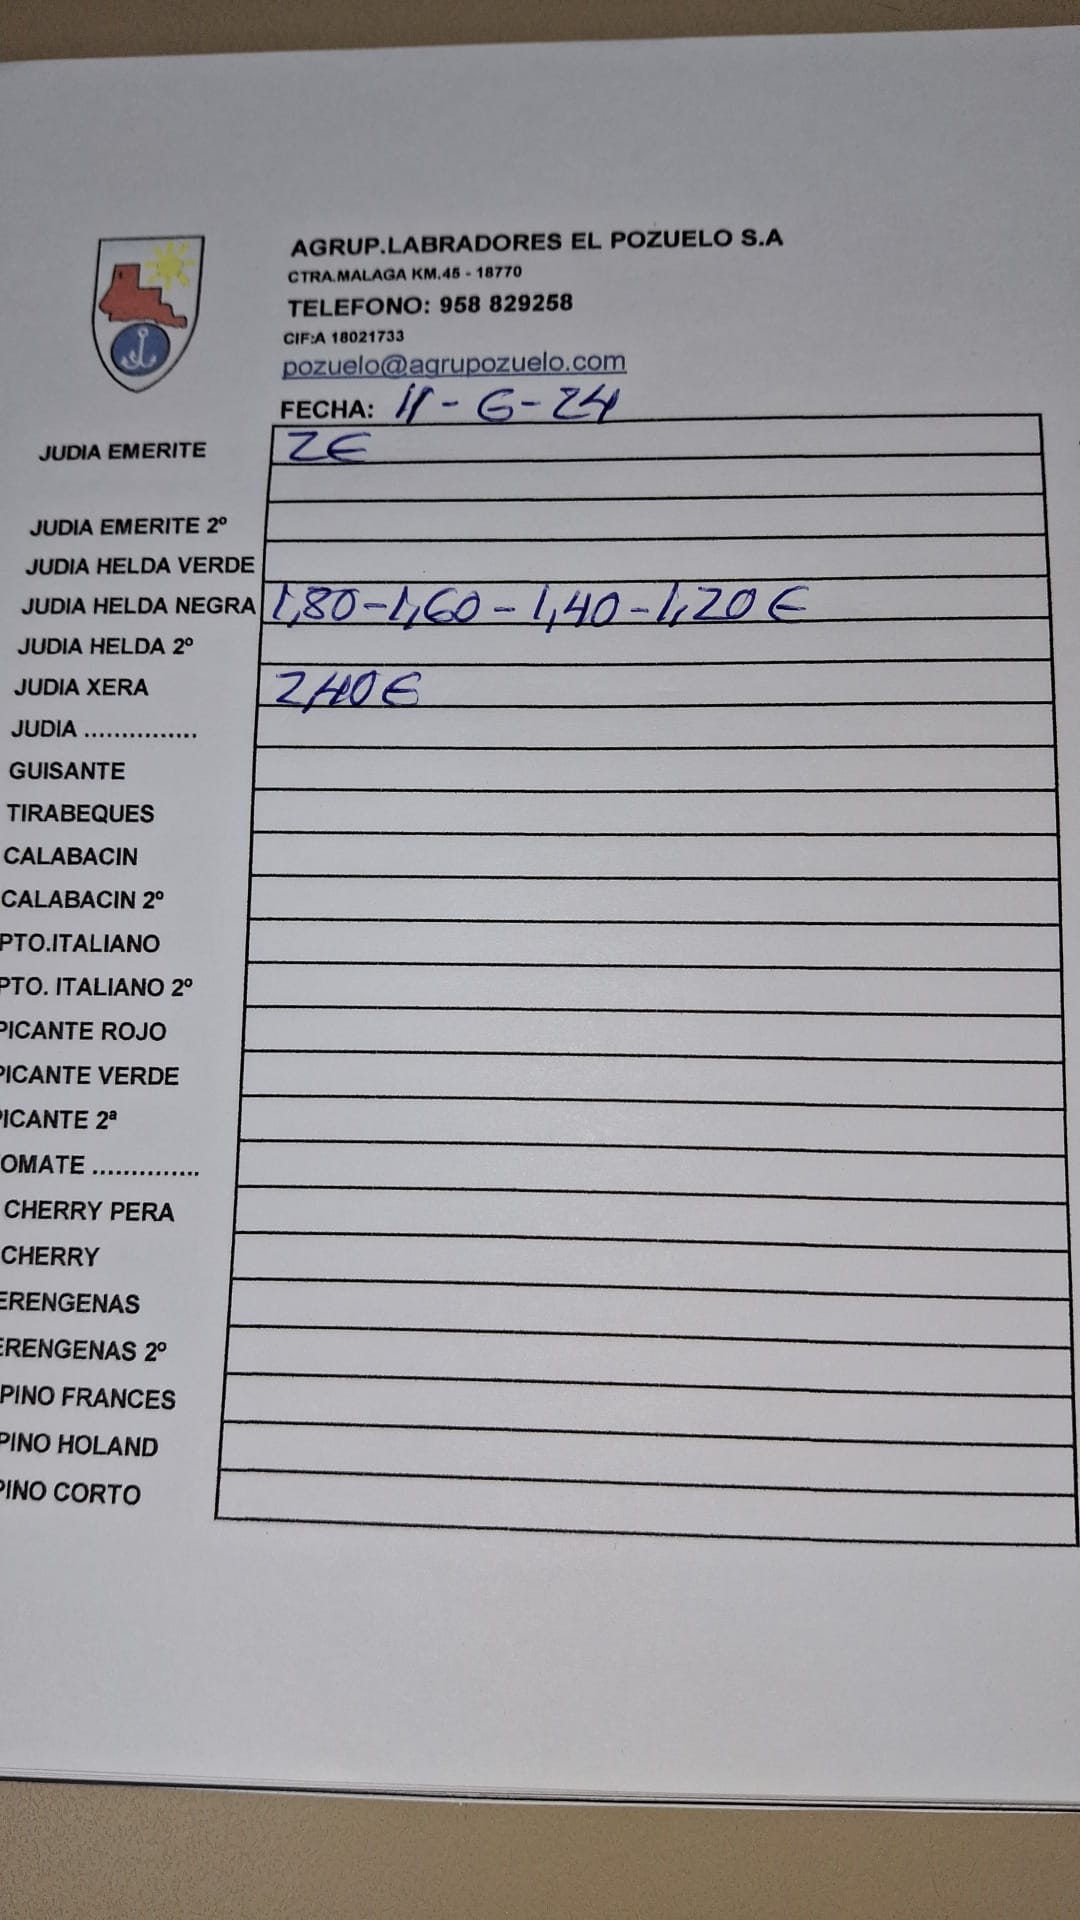 AGRUP.LABRADORES EL POZUELO S.A
CTRA.MALAGA KM.45 - 18770
TELEFONO: 958 829258
CIF:A 18021733
pozuelo@agrupozuelo.com
FECHA: 11-6-24
JUDIA EMERITE 2€
JUDIA EMERITE 2º
JUDIA HELDA VERDE
JUDIA HELDA NEGRA 1,80-1,60-1,40-1,20€
JUDIA HELDA 2º
JUDIA XERA 2,40€
JUDIA ...............
GUISANTE
TIRABEQUES
CALABACIN
CALABACIN 2º
PTO.ITALIANO
PTO. ITALIANO 2º
PICANTE ROJO
PICANTE VERDE
PICANTE 2ª
OMATE ..............
CHERRY PERA
CHERRY
ERENGENAS
ERENGENAS 2º
PINO FRANCES
PINO HOLAND
PINO CORTO